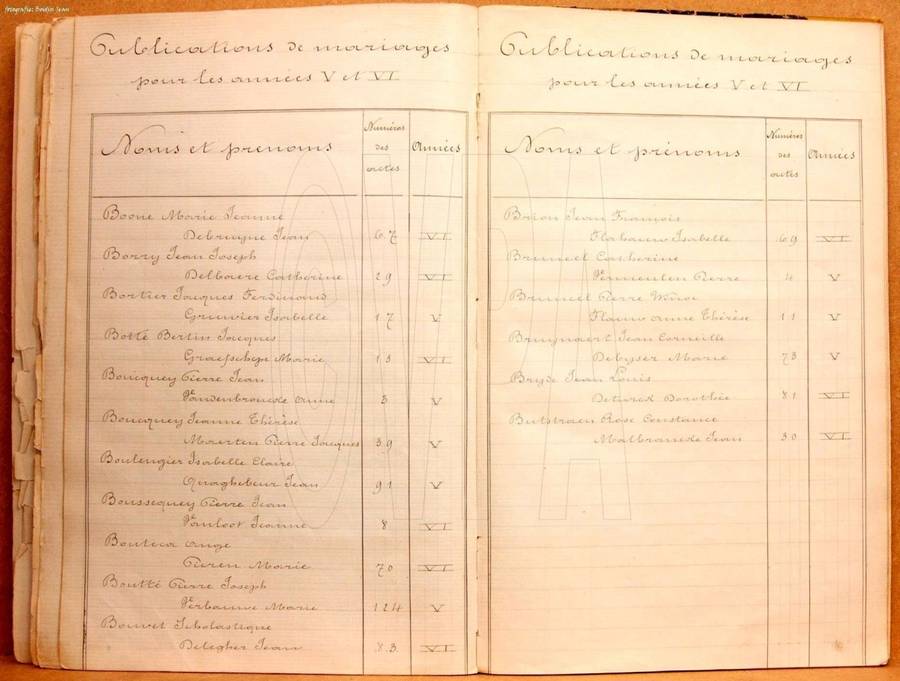 fotografie: Boidin Jean
Publications de mariages
pour les années V et VI
Noms et prénoms
Numéros des actes
Années
Boone Marie Jeanne
Debruyne Jean 67 VI
Borry Jean Joseph
Delbaere Catherine 29 VI
Bortier Jacques Ferdinand
Grunier Isabelle 17 V
Botte Bertin Jacques
Graefschepe Marie 13 VI
Boucquey Pierre Jean
Vandenbroucke Anne 3 V
Boucquey Jeanne Thérèse
Maerten Pierre Jacques 39 V
Boulengier Isabelle Claire
Quaghebeur Jean 91 V
Boussequey Pierre Jean
Vanloot Jeanne 8 VI
Bouteca Ange
Pieren Marie 70 VI
Boutté Pierre Joseph
Verbauwe Marie 124 V
Bouvet Scholastique
Delegher Jean 83 VI
Publications de mariages
pour les années V et VI
Noms et prénoms
Numéros des actes
Années
Brion Jean François
Flahauw Isabelle 69 VI
Bruneel Catherine
Vermeulen Pierre 4 V
Bruneel Pierre Winoc
Flauw Anne Thérèse 11 V
Bruynaert Jean Corneille
Debyser Marie 73 V
Bryde Jean Louis
Deturck Dorothée 81 VI
Butstraen Rose Constance
Malbrancke Jean 30 VI